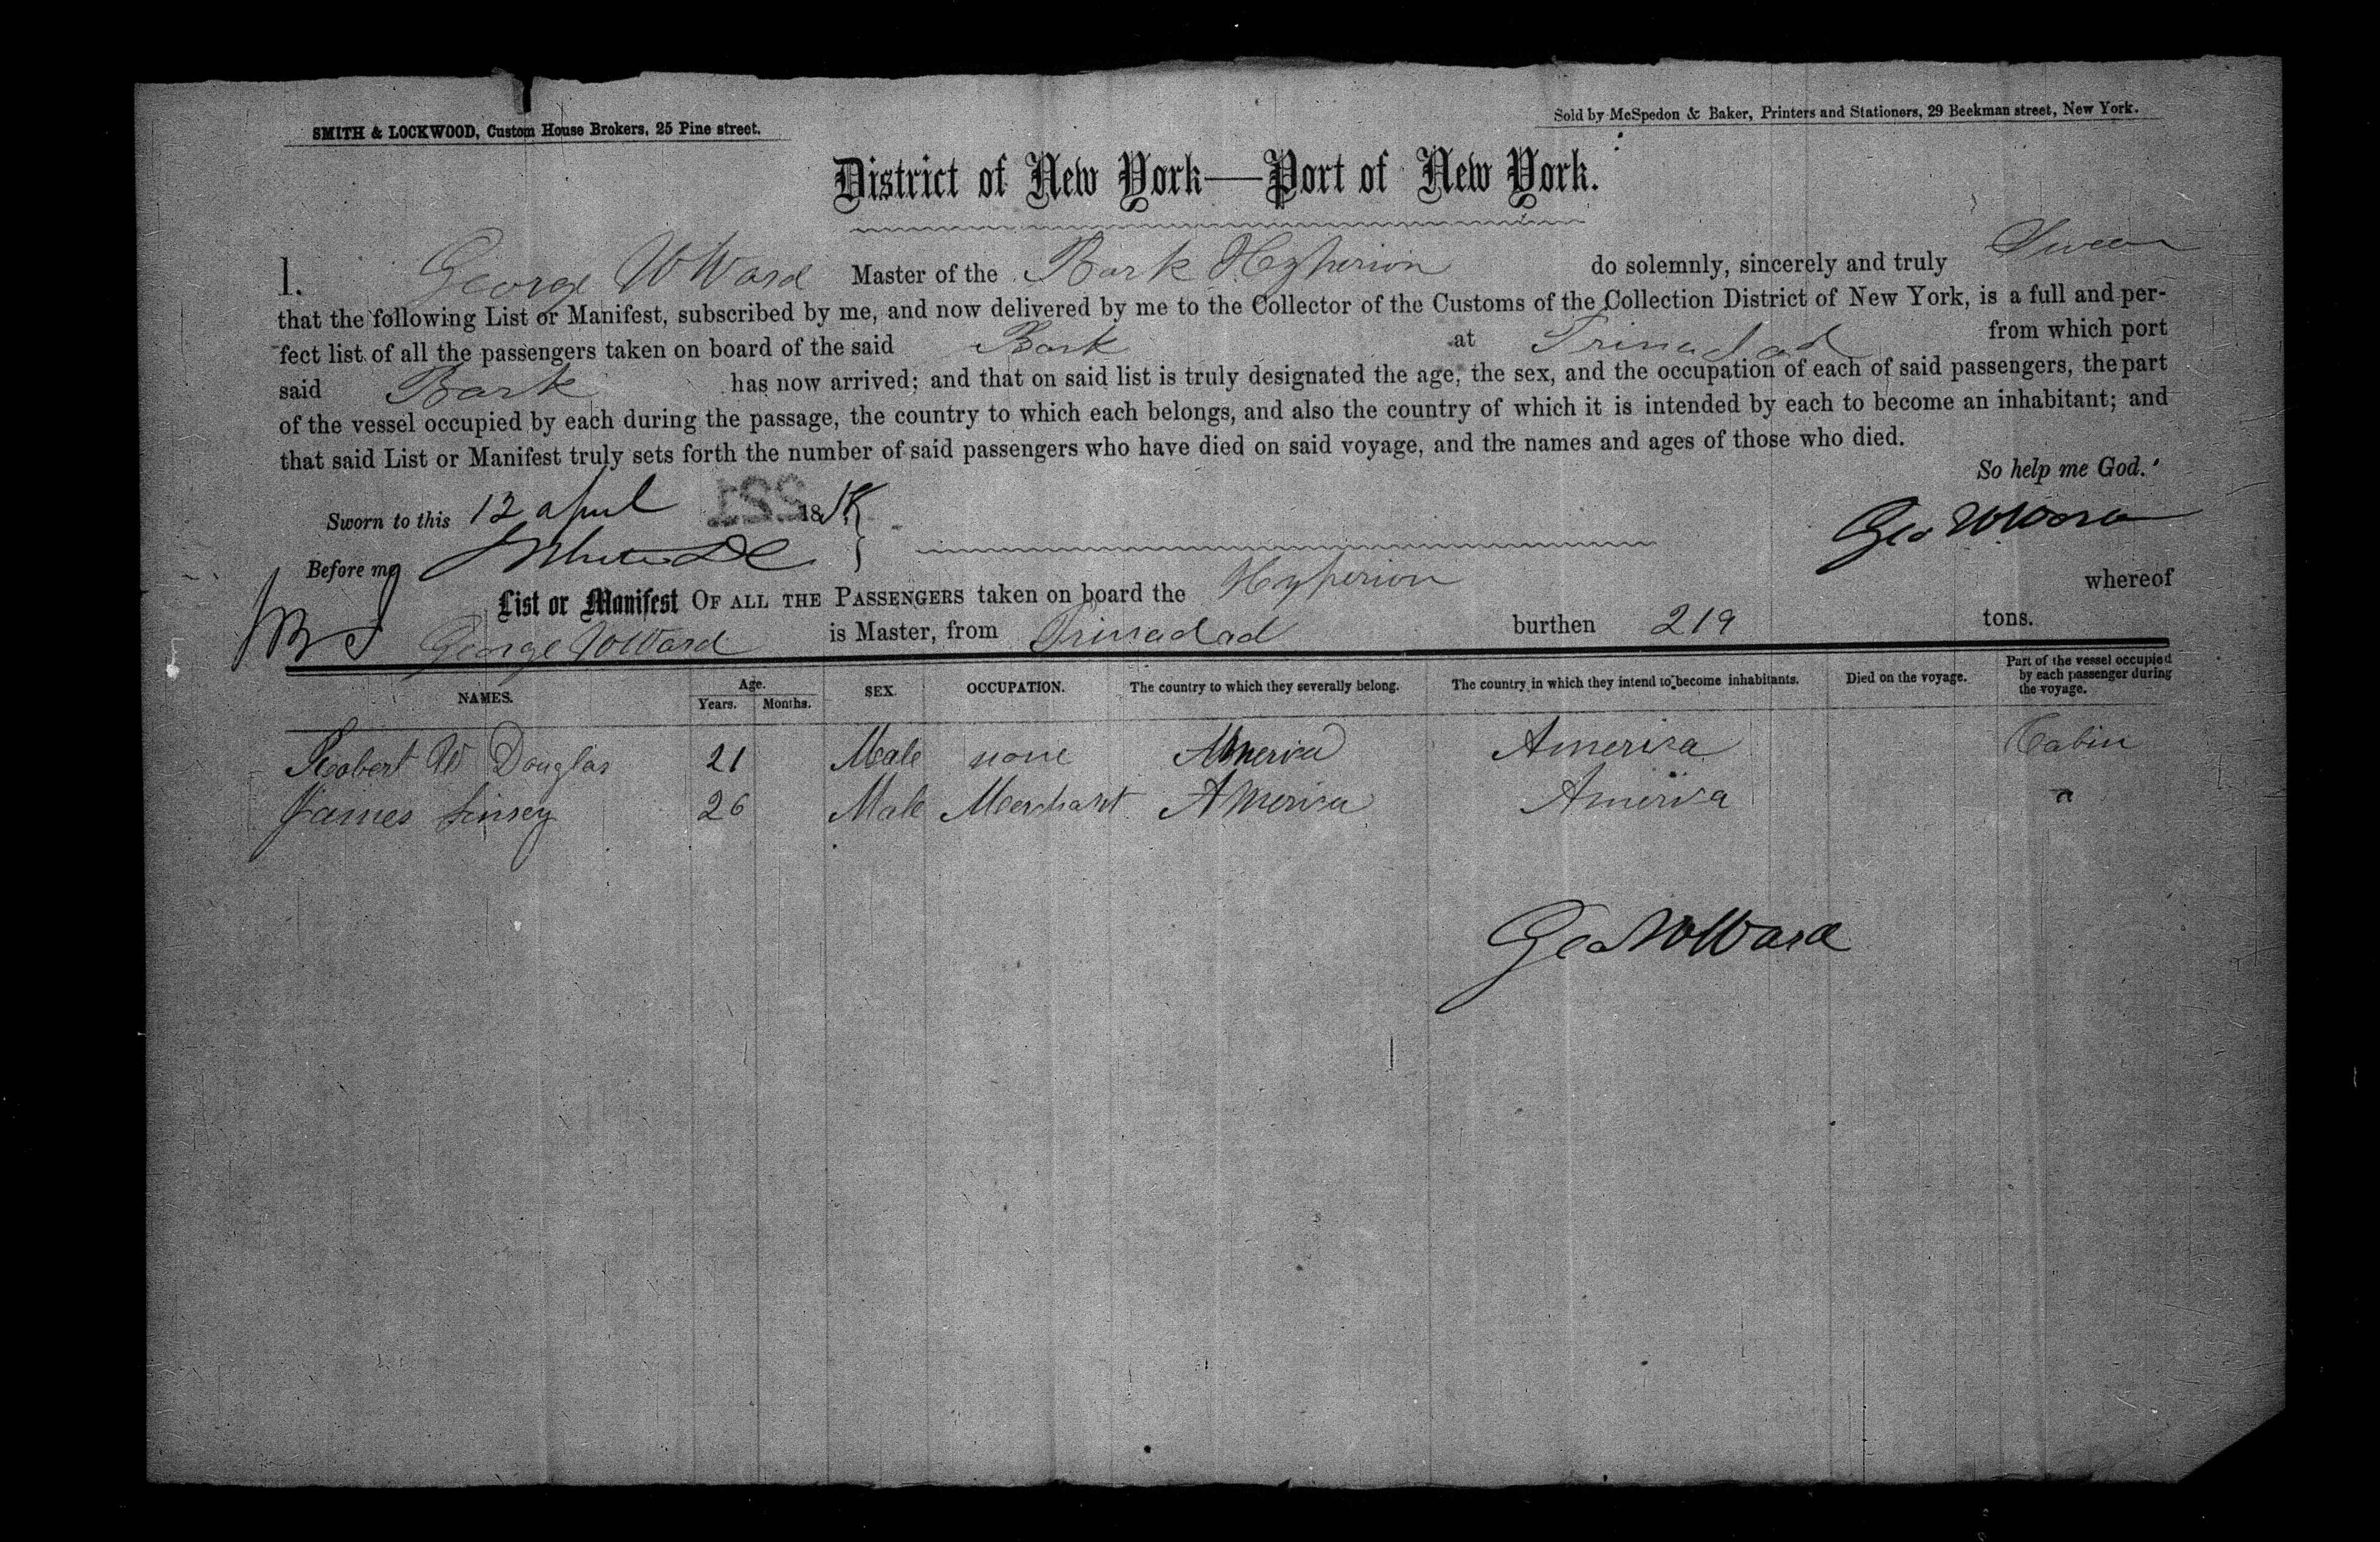 SMITH & LOCKWOOD, Custom House Brokers, 25 Pine street.
Sold by McSpedon & Baker, Printers and Stationers, 29 Beekman street, New York.
District of New York—Port of New York.
I. George W Ward Master of the Bark Hyperion do solemnly, sincerely and truly Swear
that the following List or Manifest, subscribed by me, and now delivered by me to the Collector of the Customs of the Collection District of New York, is a full and per-
fect list of all the passengers taken on board of the said Bark at Trinadad from which port
said Bark has now arrived; and that on said list is truly designated the age, the sex, and the occupation of each of said passengers, the part
of the vessel occupied by each during the passage, the country to which each belongs, and also the country of which it is intended by each to become an inhabitant; and
that said List or Manifest truly sets forth the number of said passengers who have died on said voyage, and the names and ages of those who died.
So help me God.
Sworn to this 12 april 18
Geo W Ward
Before me
List or Manifest OF ALL THE PASSENGERS taken on board the Hyperion whereof
George W Ward is Master, from Trinadad burthen 219 tons.
NAMES. Age. Years. Months. SEX. OCCUPATION. The country to which they severally belong. The country in which they intend to become inhabitants. Died on the voyage. Part of the vessel occupied by each passenger during the voyage.
Robert W Douglas 21 Male none America America Cabin
James Linsey 26 Male Merchant America America "
Geo W Ward